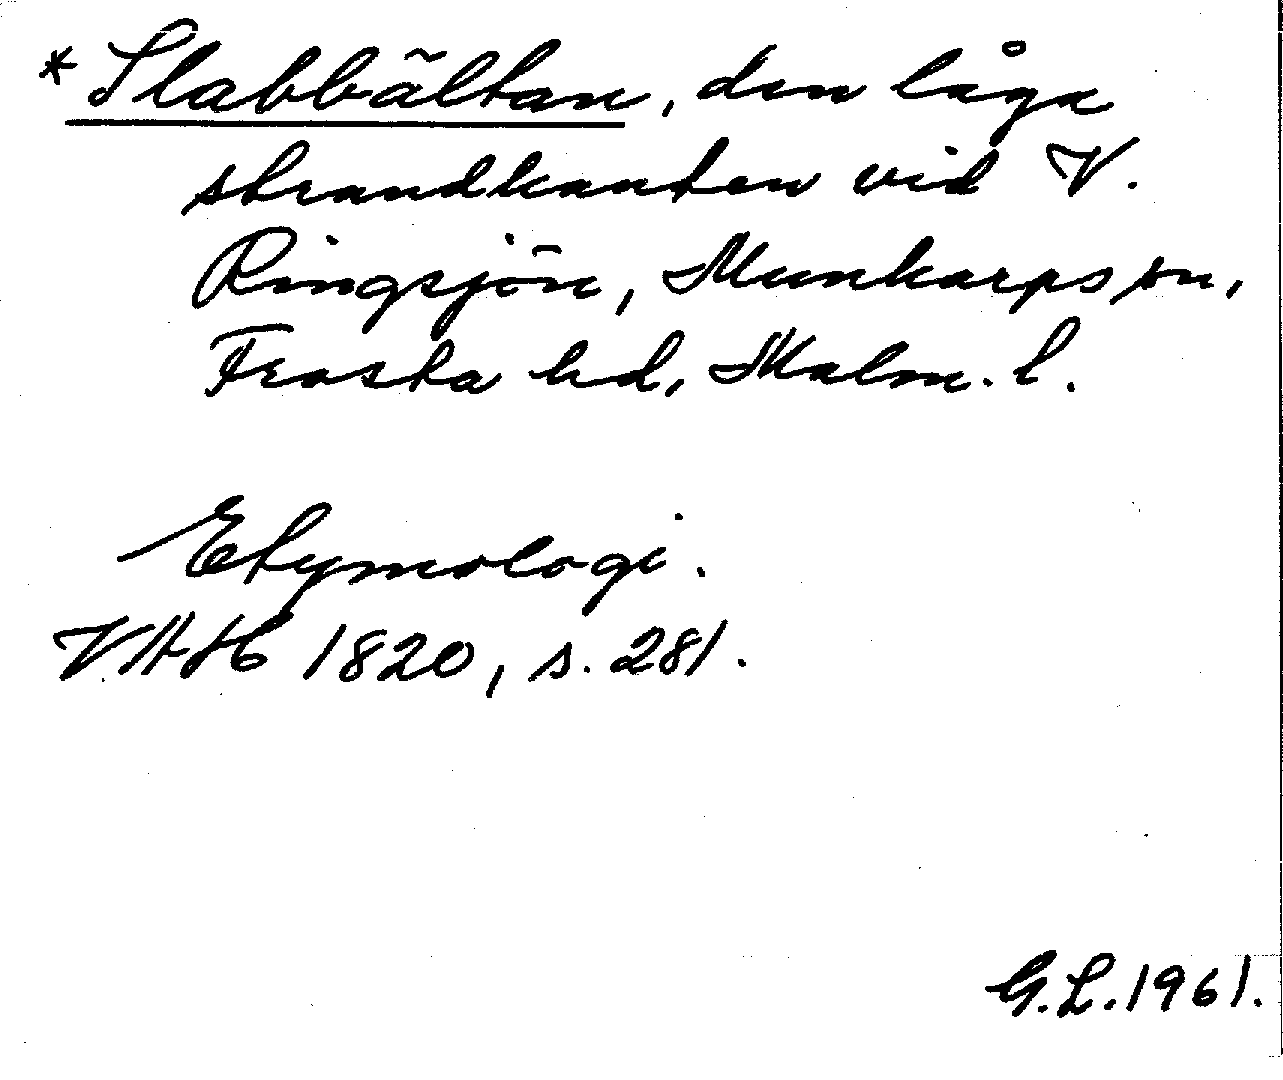 *Slabbältan, den låga
strandkanten vid V.
Ringsjön, Munkarps sn,
Frosta hd, Malm. l.
Etymologi.
VAH 1820, s. 281.
G.L. 1961.